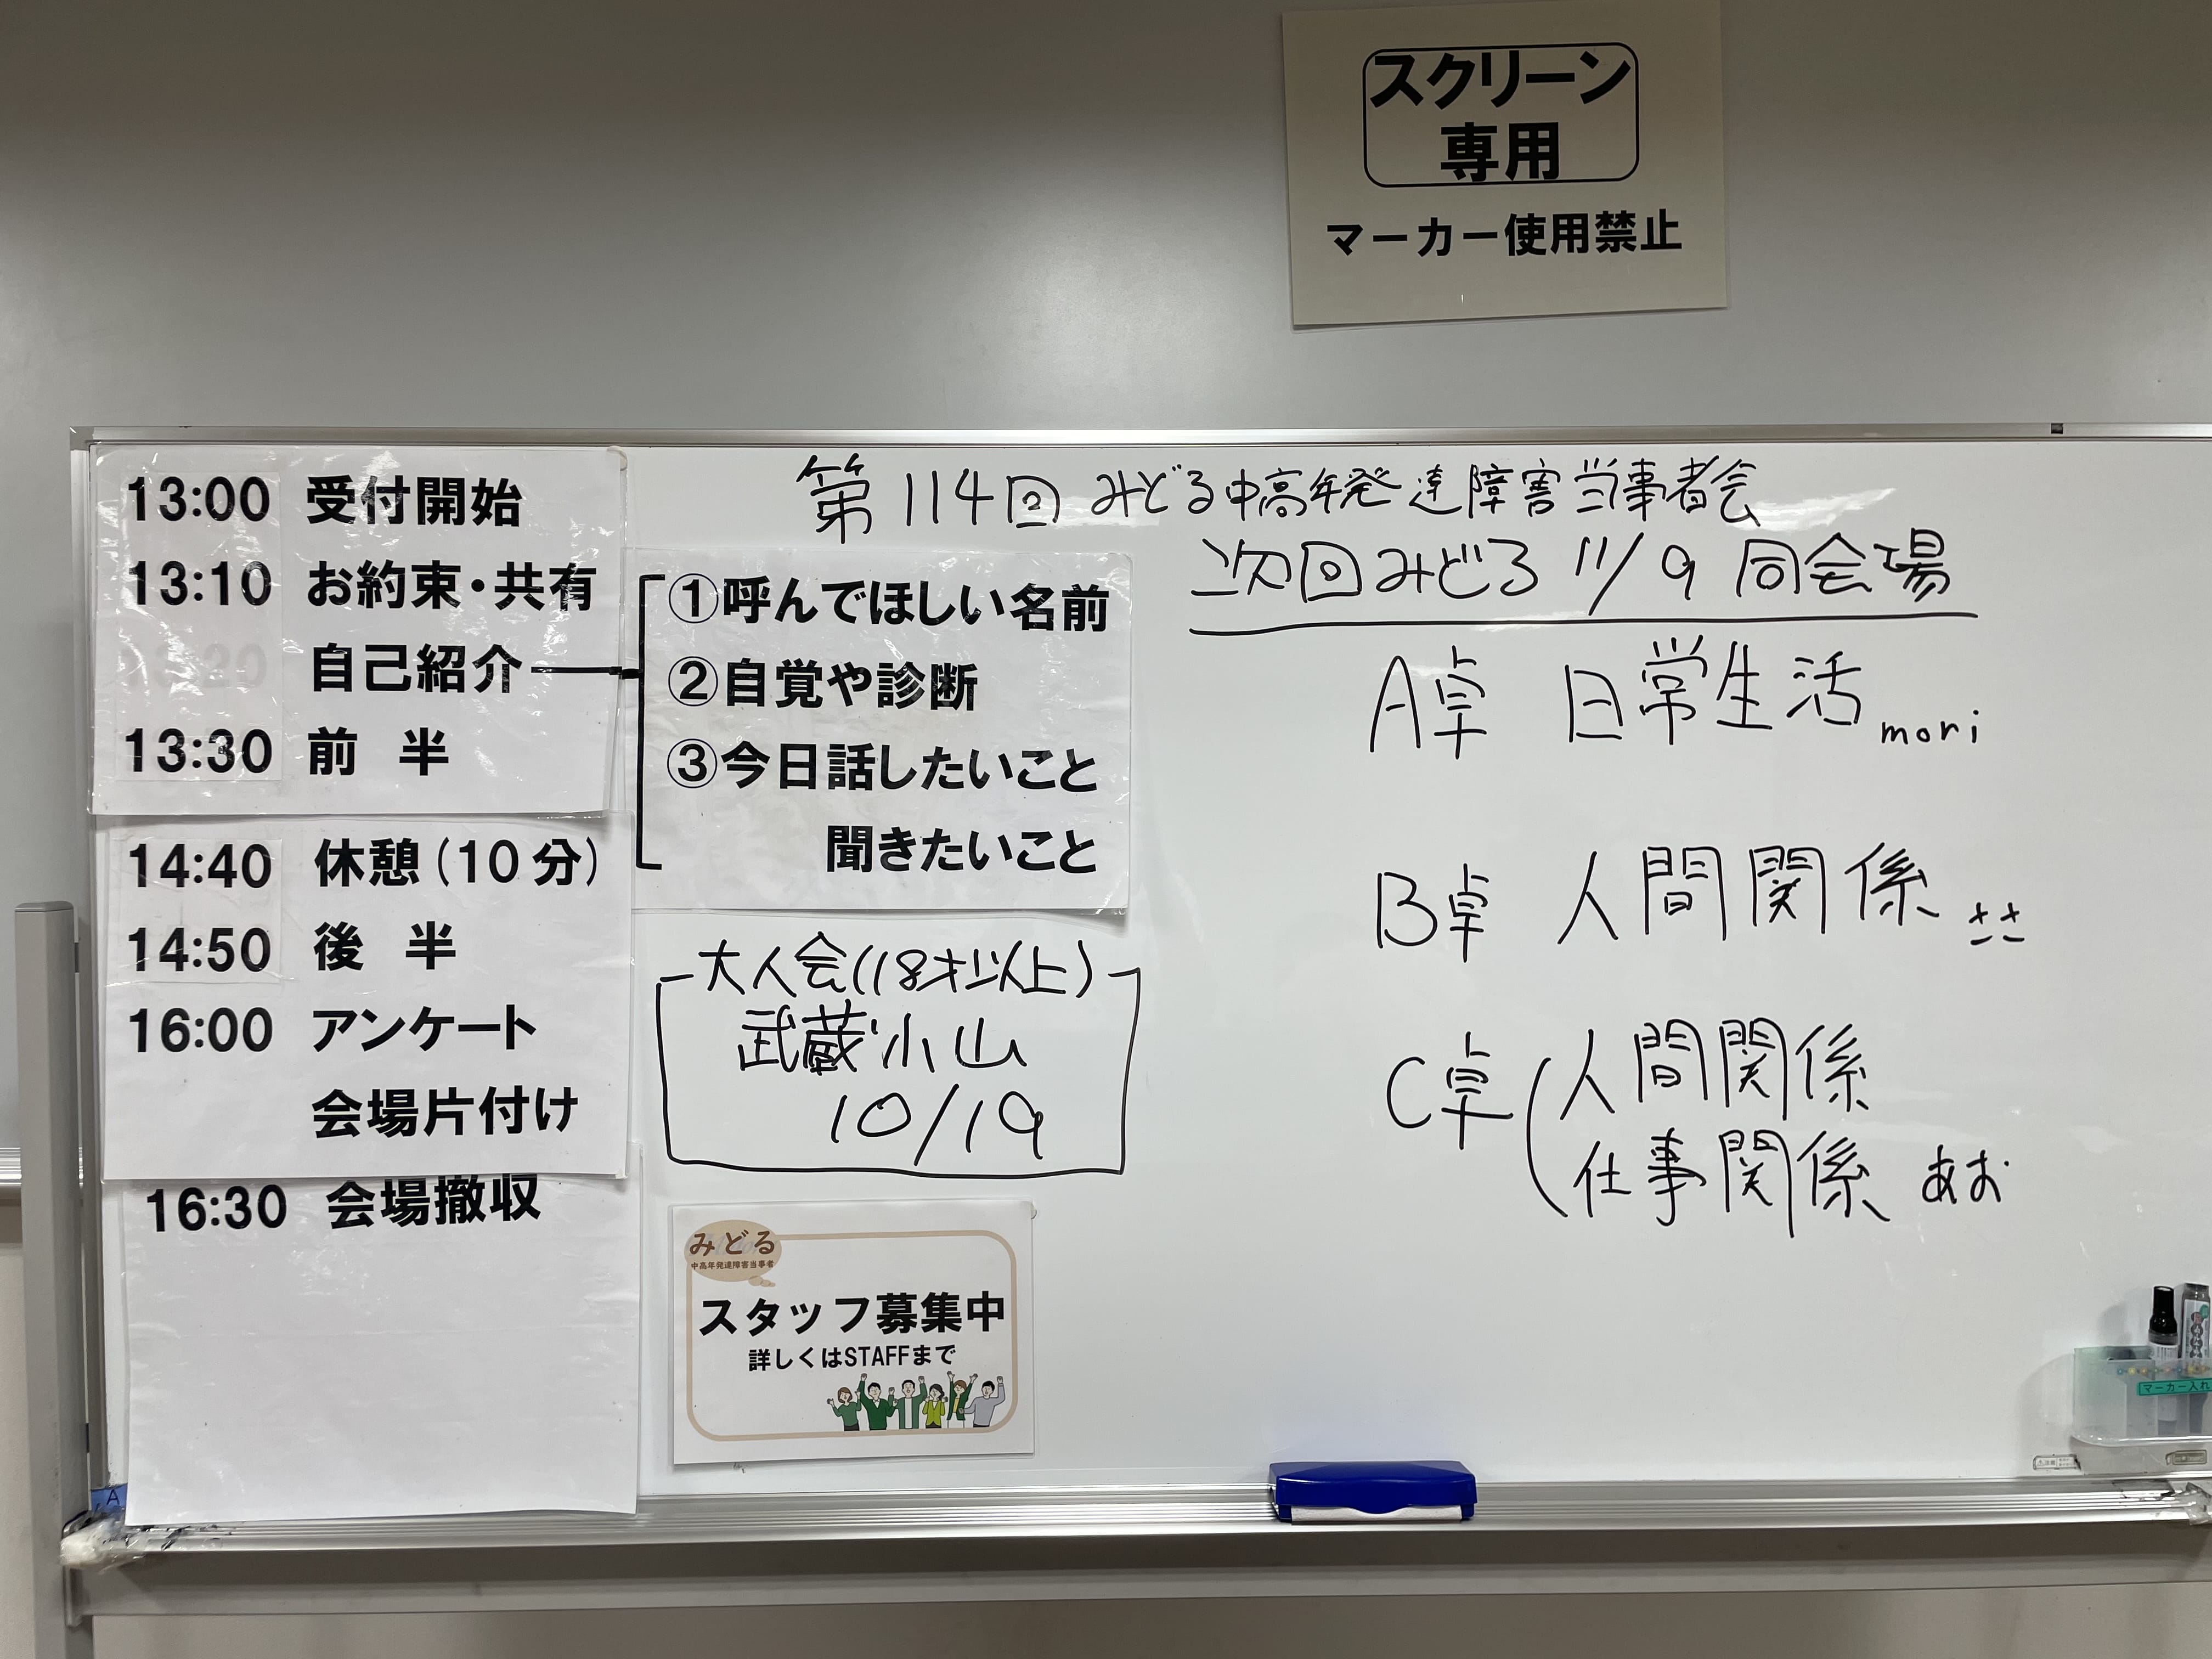 スクリーン
専用
マーカー使用禁止
第114回 みどる中高年発達障害当事者会
次回みどる 11/9 同会場
13:00 受付開始
13:10 お約束・共有
自己紹介
13:30 前 半
14:40 休憩(10分)
14:50 後 半
16:00 アンケート
会場片付け
16:30 会場撤収
①呼んでほしい名前
②自覚や診断
③今日話したいこと
聞きたいこと
大人会(18才以上)
武蔵小山
10/19
みどる
中高年発達障害当事者
スタッフ募集中
詳しくはSTAFFまで
A卓 日常生活 mori
B卓 人間関係 ささ
C卓 人間関係
仕事関係 あお
マーカー入れ
A